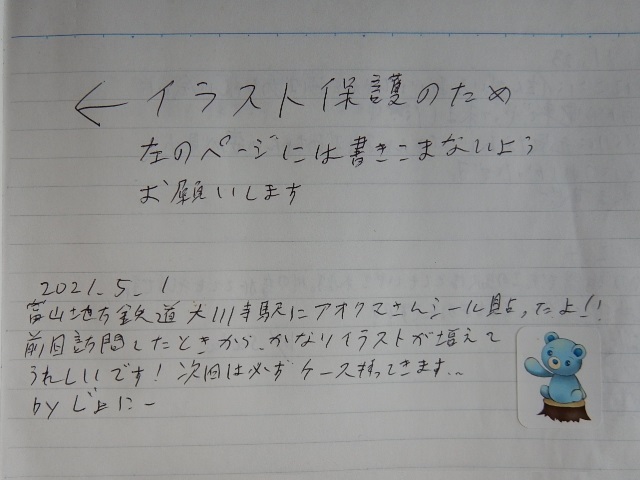 ← イラスト保護のため
左のページには書きこまないよう
お願いします
2021.5.1
富山地方鉄道大川寺駅にアオクマさんシール貼ったよ!!
前回訪問したときから、かなりイラストが増えて
うれしいです! 次回は必ずケース持ってきます…
by じょにー